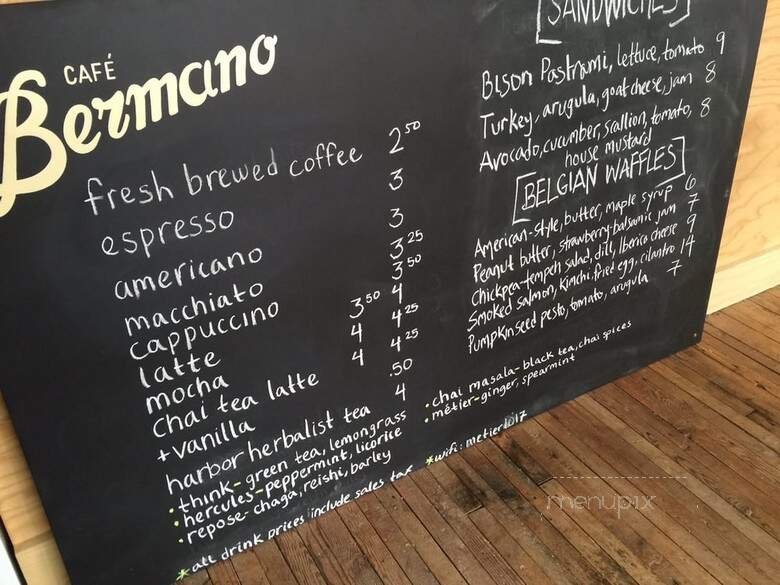 CAFÉ
Bermano
fresh brewed coffee 2 50
espresso 3
americano 3
macchiato 3 25
cappuccino 3 50
latte 3 50 4
mocha 4 4 25
chai tea latte 4 4 25
+vanilla .50
harbor herbalist tea 4
• think - green tea, lemongrass
• hercules - peppermint, licorice
• repose - chaga, reishi, barley
• chai masala - black tea, chai spices
• métier - ginger, spearmint
*all drink prices include sales tax
*wifi: metier1017
[SANDWICHES]
Bison Pastrami, lettuce, tomato 9
Turkey, arugula, goat cheese, jam 8
Avocado, cucumber, scallion, tomato, 8
house mustard
[BELGIAN WAFFLES]
American-style, butter, maple syrup 6
Peanut butter, strawberry-balsamic jam 7
Chickpea-tempeh salad, dill, Iberico cheese 9
Smoked salmon, kimchi, fried egg, cilantro 14
Pumpkinseed pesto, tomato, arugula 7
menupix